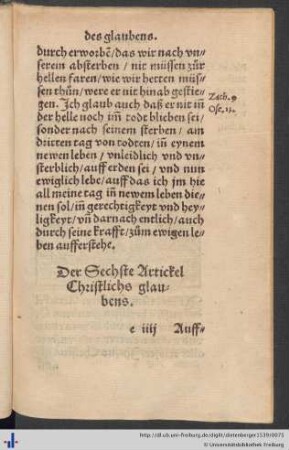 des glaubens.
durch erworbẽ/das wir nach vn-
serem absterben / nit müssen zůr
hellen faren/wie wir hetten müs-
sen thůn/were er nit hinab gestie-
gen. Ich glaub auch daß er nit iñ
der helle noch im̃ tod bliben sei/
sonder nach seinem sterben / am
dritten tag von todten/ in eynem
newen leben / vnleidlich vnd vn-
sterblich/ auff erden sei / vnd nun
ewiglich lebe/auff das ich jm hie
all meine tag iñ newem leben die-
nen sol/iñ gerechtigkeyt vnd hey-
ligkeyt/ vñ darnach entlich/auch
durch seine krafft/zům ewigen le-
ben aufferstehe.
Zach. 9
Ose. 13.
Der Sechste Artickel
Christlichs glau-
bens.
e iiij Auff-
http://dl.ub.uni-freiburg.de/diglit/dietenberger1539/0073
© Universitätsbibliothek Freiburg